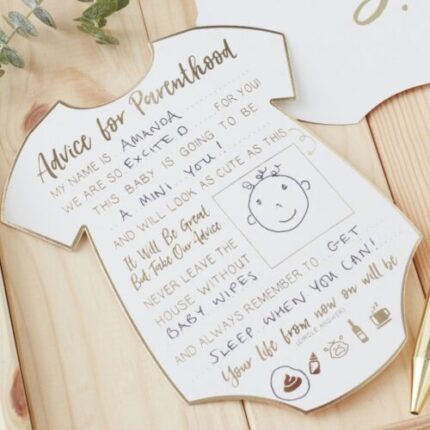 Advice for Parenthood
MY NAME IS AMANDA
WE ARE SO EXCITED FOR YOU!
THIS BABY IS GOING TO BE
A MINI YOU!
AND WILL LOOK AS CUTE AS THIS
It Will Be Great
But Take Our Advice
NEVER LEAVE THE
HOUSE WITHOUT
BABY WIPES
AND ALWAYS REMEMBER TO GET
SLEEP WHEN YOU CAN!
Your life from now on will be
(CIRCLE ANSWER)